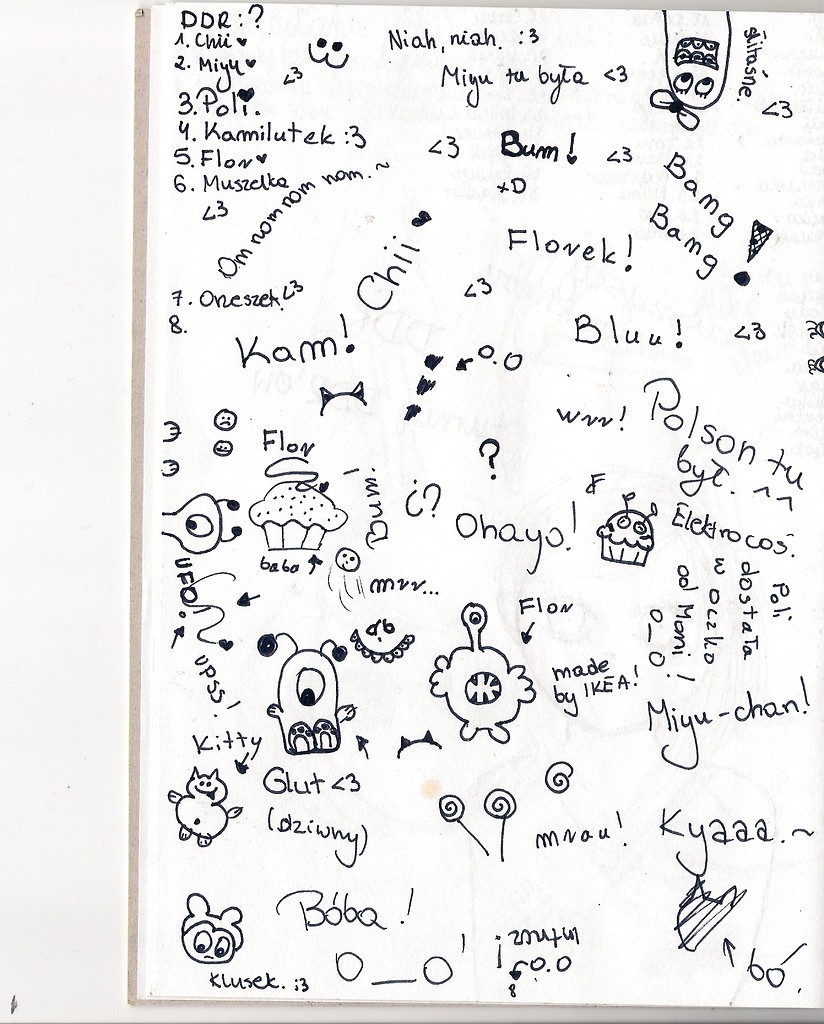 DDR:?
1. Chii ♥
2. Miyu ♥
<3
3. Poli.
4. Kamilutek :3
5. Flor ♥
6. Muszelka
<3
Niah, niah. :3
Miyu tu była <3
ślitaśne.
<3
<3
Bum! <3
+D
Bang
Bang
Om nom nom nom nom.~
Chii
Florek!
7. Orzeszek. <3
8.
<3
Kam!
Bluu! <3
o.O
wrr!
Polson tu
był. ^^
Flor
?
¿?
Ohayo!
Elektrocoś.
baba
UFO!
mrr...
Flor
Poli
dostała
w oczko
od Moni!
o_O
made
by IKEA!
upss!
Miyu-chan!
Kitty
Glut <3
(dziwny)
mrau!
Kyaaa.~
Bóba!
Klusek. :3
O_O'
o.O
bó.